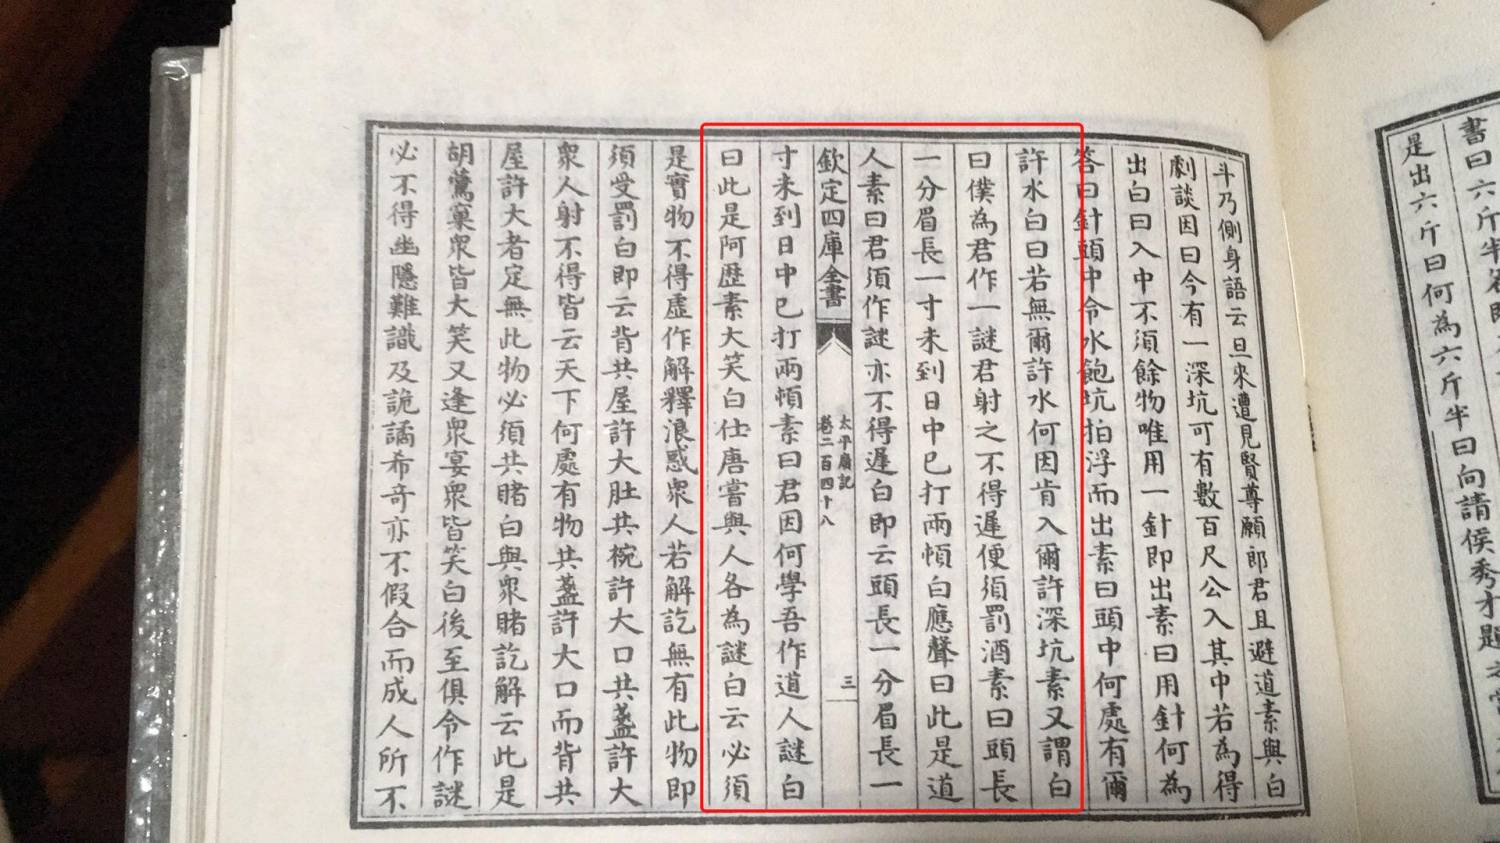 書曰六斤半
是出六斤曰何為六斤半曰向請侯秀才題
斗乃側身語云旦來遭見賢尊願郎君且避道素與白
劇談因曰今有一深坑可有數百尺公入其中若為得
出白曰入中不須餘物唯用一針即出素曰用針何為
答曰針頭中令水飽坑拍浮而出素曰頭中何處有爾
許水白曰若無爾許水何因肯入爾許深坑素又謂白
曰僕為君作一謎君射之不得遲便須罰酒素曰頭長
一分眉長一寸未到日中已打兩頓白應聲曰此是道
人素曰君須作謎亦不得遲白即云頭長一分眉長一
欽定四庫全書
太平廣記
卷二百四十八
三
寸未到日中已打兩頓素曰君因何學吾作道人謎白
曰此是阿歷素大笑白仕唐嘗與人各為謎白云必須
是實物不得虛作解釋浪惑眾人若解訖無有此物即
須受罰白即云背共屋許大肚共椀許大口共盞許大
眾人射不得皆云天下何處有物共盞許大口而背共
屋許大者定無此物必須共賭白與眾賭訖解云此是
胡鷰窠眾皆大笑又逢眾宴眾皆笑白後至俱令作謎
必不得幽隱難識及詭譎希奇亦不假合而成人所不